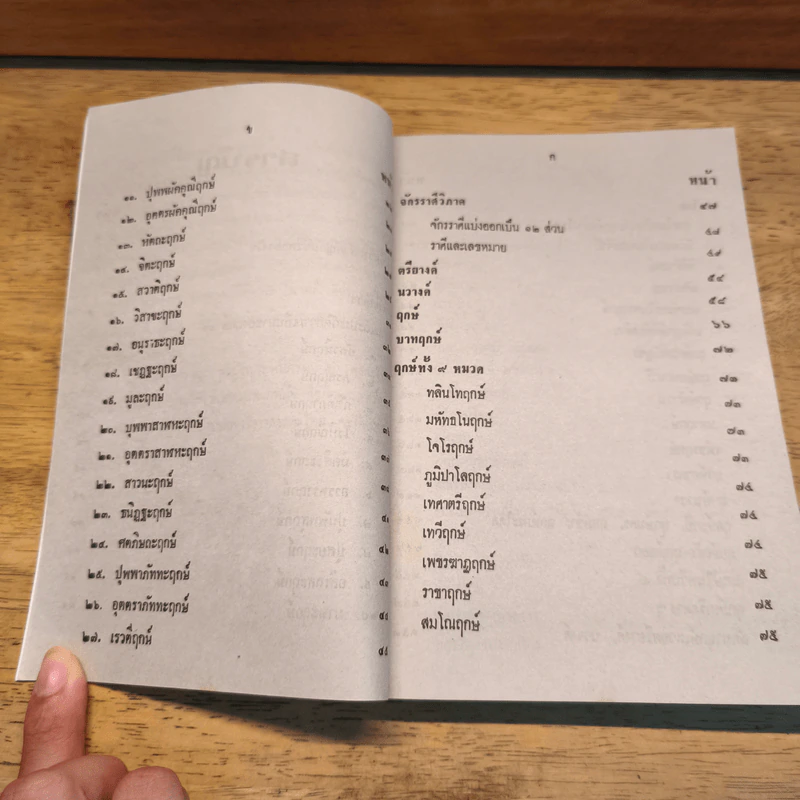 ข
๑๑. ปุพพผัคคุณีฤกษ์
๑๒. อุตตรผัคคุณีฤกษ์
๑๓. หัตถะฤกษ์
๑๔. จิตะฤกษ์
๑๕. สวาติฤกษ์
๑๖. วิสาขะฤกษ์
๑๗. อนุราธะฤกษ์
๑๘. เชฏฐะฤกษ์
๑๙. มูละฤกษ์
๒๐. บุพพาสาฬหะฤกษ์
๒๑. อุตตราสาฬหะฤกษ์
๒๒. สาวนะฤกษ์
๒๓. ธนิฏฐะฤกษ์
๒๔. ศตภิษถะฤกษ์
๒๕. ปุพพาภัททะฤกษ์
๒๖. อุตตราภัททะฤกษ์
๒๗. เรวดีฤกษ์ ๔๕
ค
หน้า
จักรราศีวิภาค ๔๗
จักรราศีแบ่งออกเป็น ๑๒ ส่วน ๔๘
ราศีและเลขหมาย ๔๙
ตรียางค์ ๕๔
นวางค์ ๕๘
ฤกษ์ ๖๖
บาทฤกษ์ ๗๒
ฤกษ์ทั้ง ๙ หมวด ๗๓
ทลิทโทฤกษ์ ๗๓
มหัทธโนฤกษ์ ๗๓
โจโรฤกษ์ ๗๓
ภูมิปาโลฤกษ์ ๗๔
เทศาตรีฤกษ์ ๗๔
เทวีฤกษ์ ๗๔
เพชรฆาฏฤกษ์ ๗๕
ราชาฤกษ์ ๗๕
สมโณฤกษ์ ๗๕